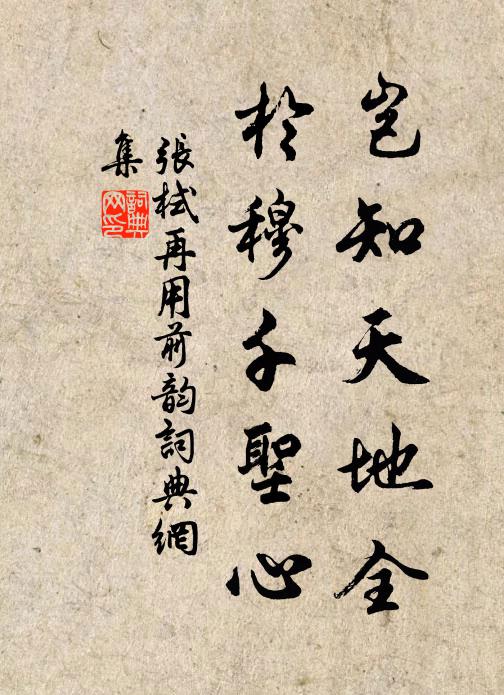 豈知天地全
於穆千聖心
張栻再用前韵詞典網
集
詞典
网印